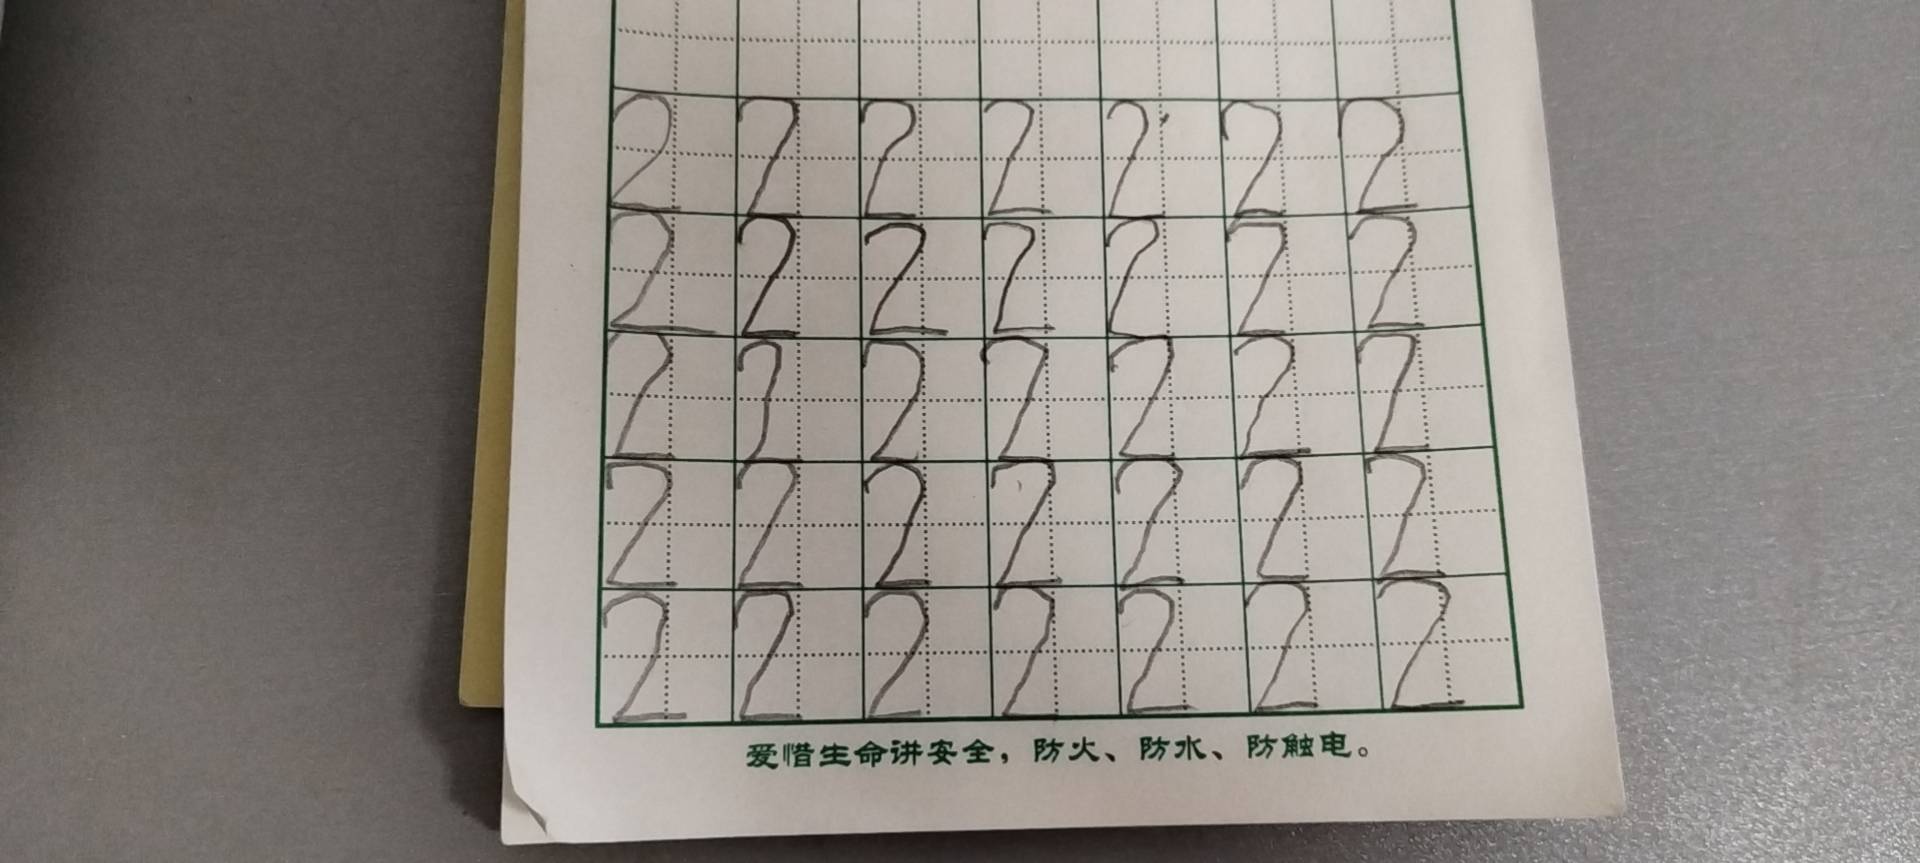 2 2 2 2 2 2 2
2 2 2 2 2 2 2
2 2 2 2 2 2 2
2 2 2 2 2 2 2
2 2 2 2 2 2 2
爱惜生命讲安全，防火、防水、防触电。